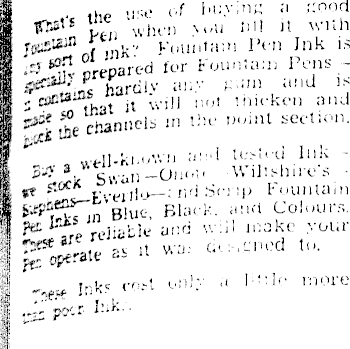 What's the use of buying a good
Fountain Pen when you fill it with
any sort of ink? Fountain Pen Ink is
specially prepared for Fountain Pens—
it contains hardly any gum and is
made so that it will not thicken and
block the channels in the point section.
Buy a well-known and tested Ink—
we stock Swan—Onoto—Wiltshire's—
Stephens—Everflo—and Scrip Fountain
Pen Inks in Blue, Black, and Colours.
These are reliable and will make your
Pen operate as it was designed to.
These Inks cost only a little more
than poor Inks.